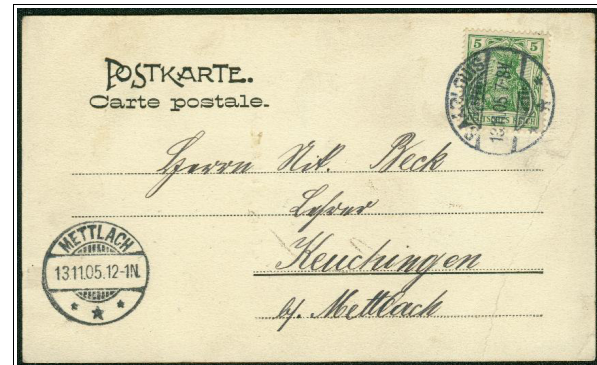 POSTKARTE.
Carte postale.
5 5
SAARLOUIS
13.11.05.7-8V.
Herrn Nik. Beck
Lehrer
Keuchingen
b/. Mettlach
METTLACH
13.11.05.12-1N.